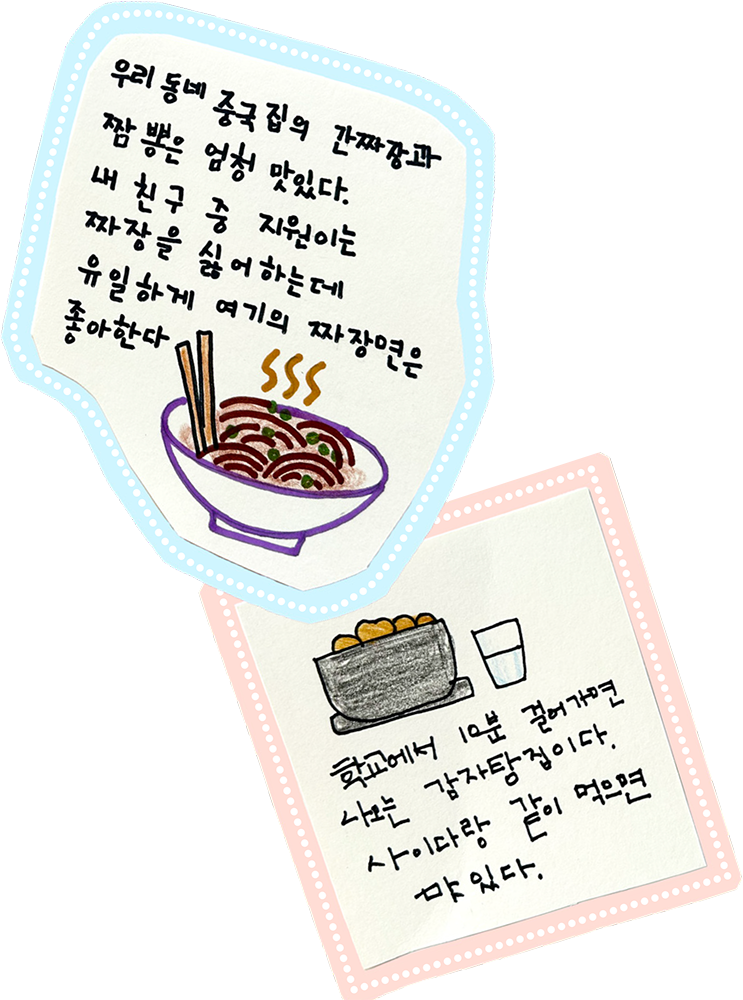 우리 동네 중국집의 간짜장과
짬뽕은 엄청 맛있다.
내 친구 중 지원이는
짜장을 싫어하는데
유일하게 여기의 짜장면은
좋아한다
학교에서 10분 걸어가면
나오는 감자탕집이다.
사이다랑 같이 먹으면
맛있다.